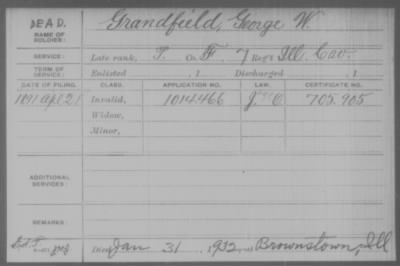 DEAD.
NAME OF SOLDIER: Grandfield, George W.
SERVICE: Late rank, P. Co. F. 7 Reg't Ill. Cav.
TERM OF SERVICE: Enlisted , 1 Discharged , 1
DATE OF FILING. CLASS. APPLICATION NO. LAW. CERTIFICATE NO.
1891 Apl 21 Invalid, 1014466 705.905
Widow,
Minor,
ADDITIONAL SERVICES:
REMARKS:
Died Jan 31, 1932 at Brownstown, Ill